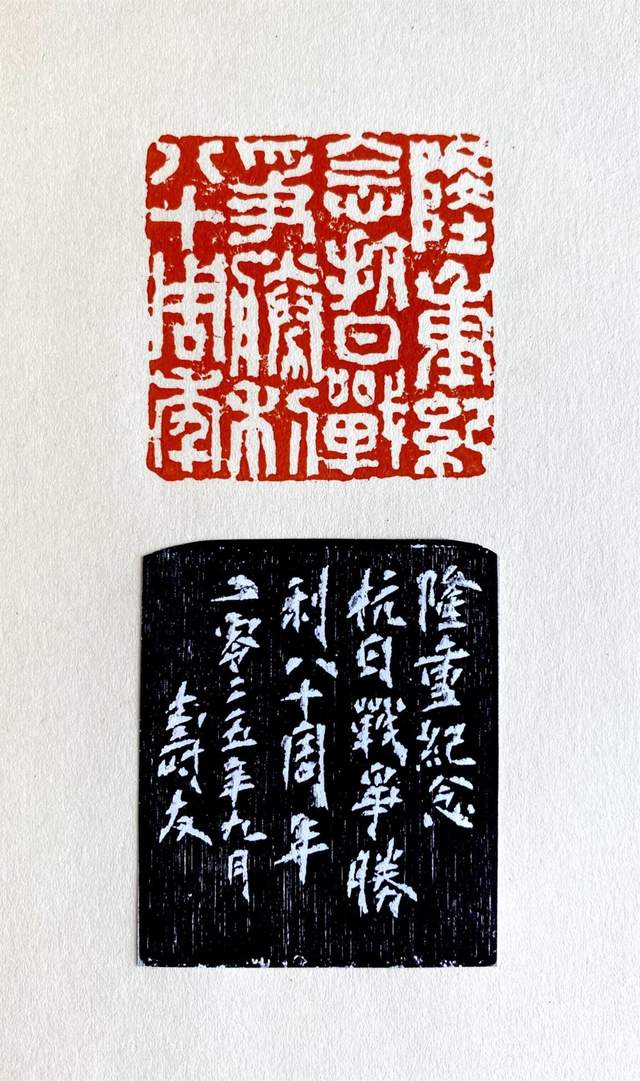 隆重紀
念抗日戰
爭勝利
八十周年
隆重紀念
抗日戰爭勝
利八十周年
二零二五年九月
壽友